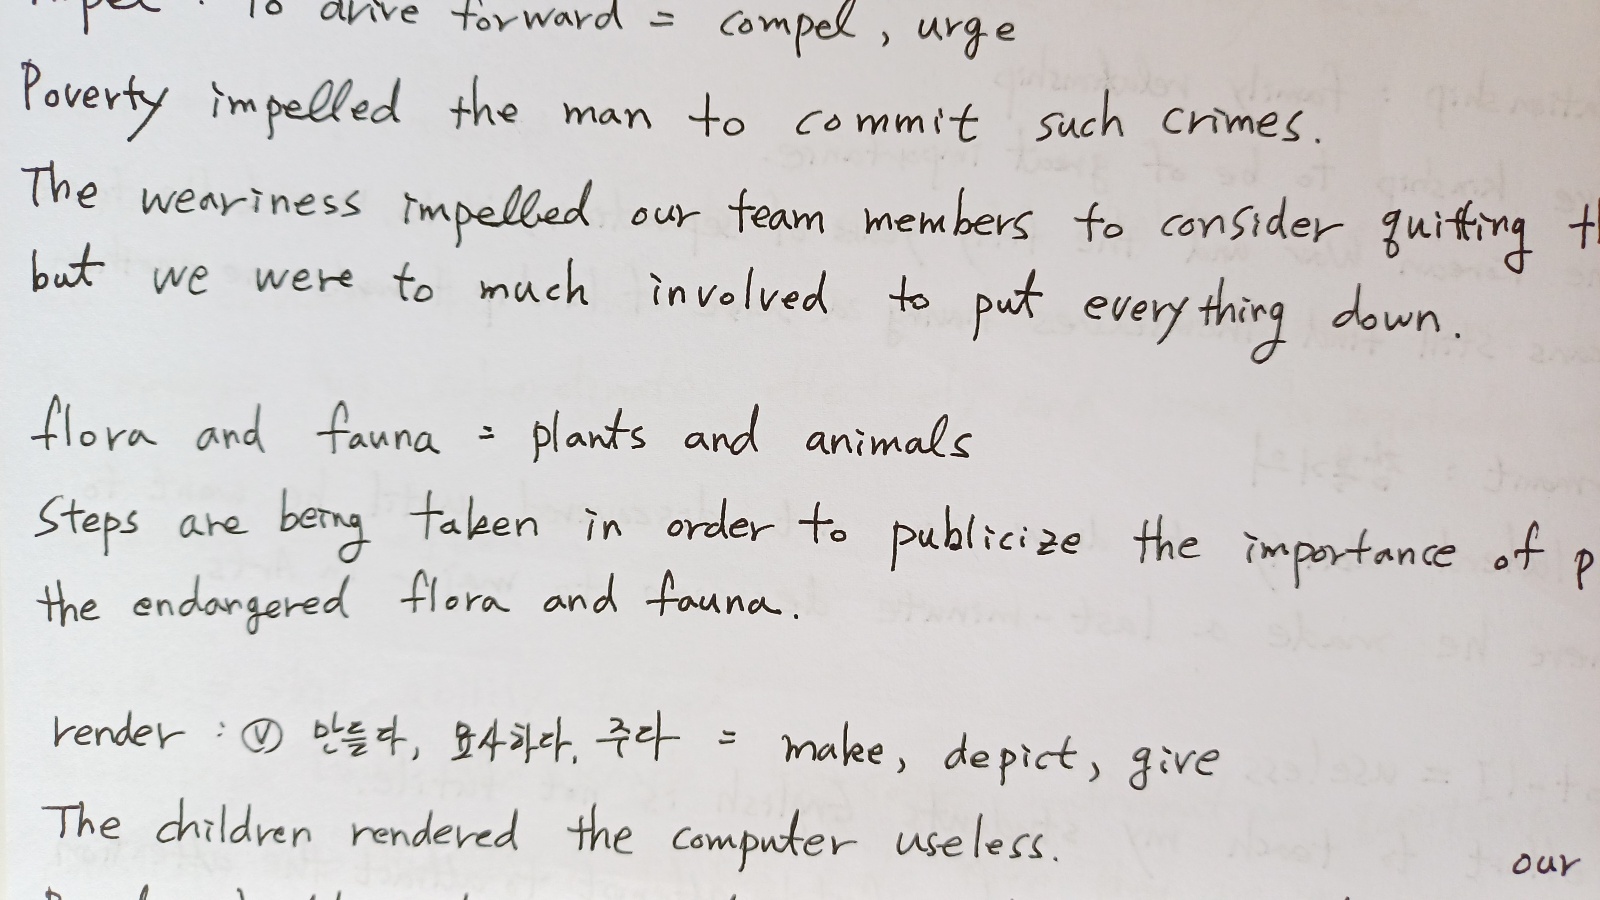 to drive forward = compel, urge
Poverty impelled the man to commit such crimes.
The weariness impelled our team members to consider quitting
but we were to much involved to put everything down.
flora and fauna = plants and animals
Steps are being taken in order to publicize the importance of
the endangered flora and fauna.
render : ⓥ 만들다, 묘사하다, 주다 = make, depict, give
The children rendered the computer useless.
our